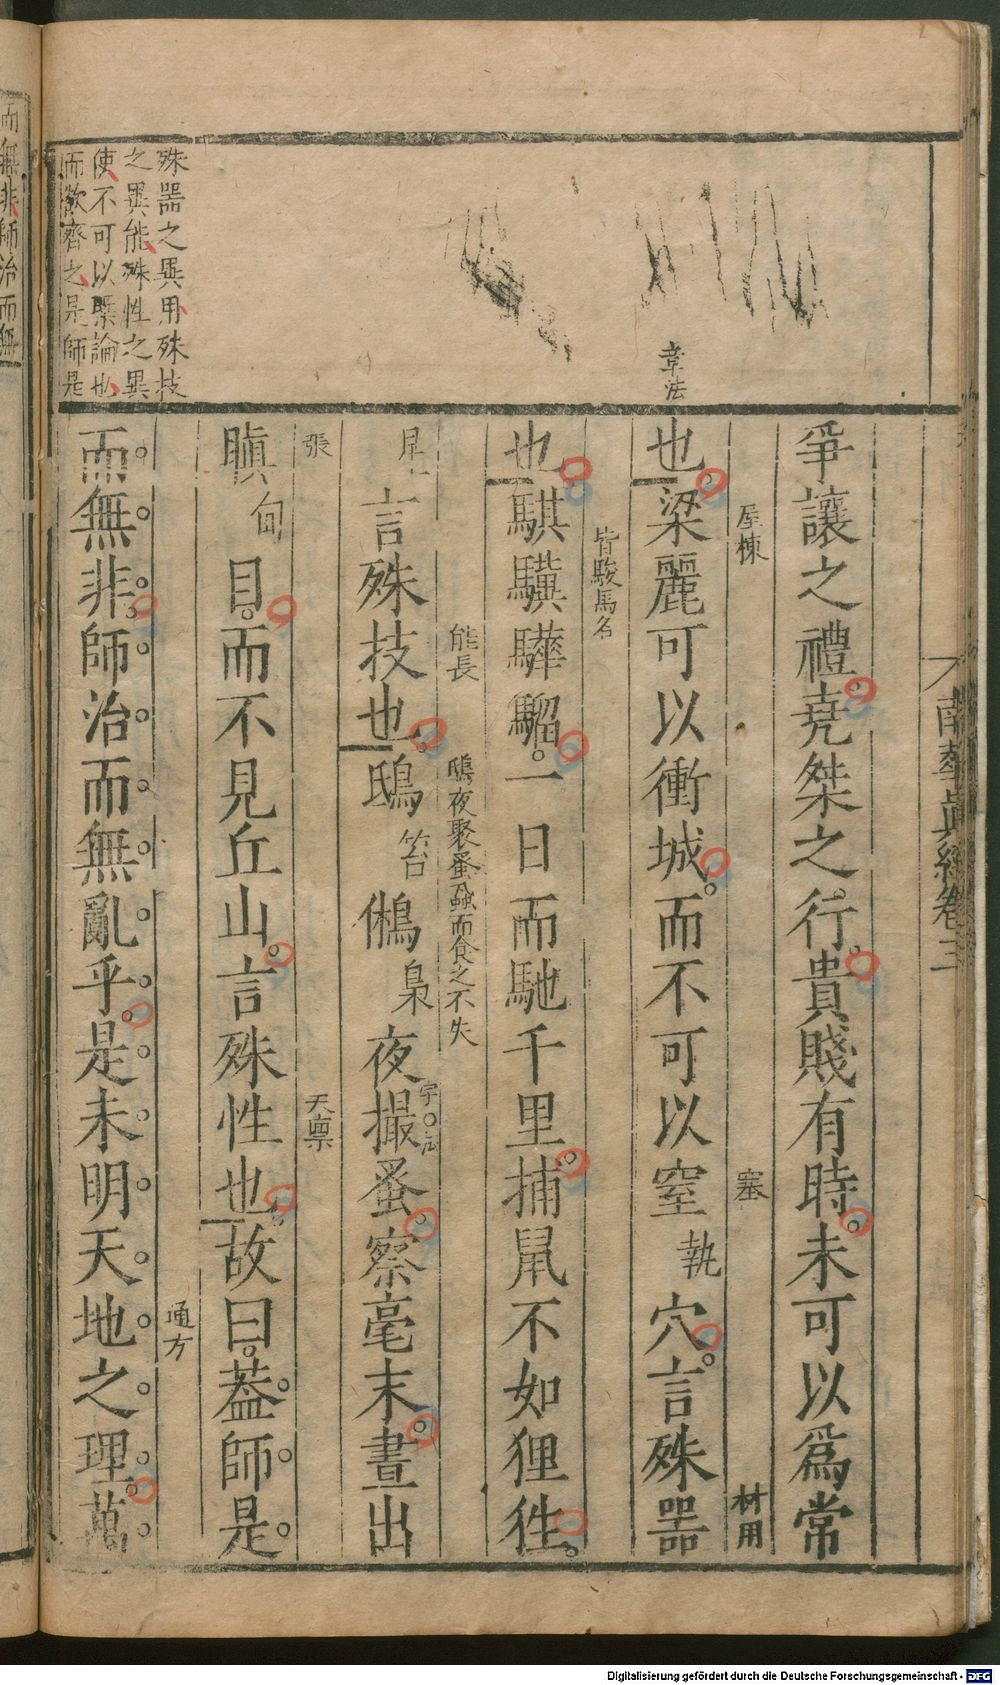 南華眞經卷三
爭讓之禮堯桀之行貴賤有時未可以爲常
屋棟
塞
材用
章法
也梁麗可以衝城而不可以窒
執
穴言殊噐
皆駿馬名
也騏驥驊騮一日而馳千里捕鼠不如狸狌
能長
鴟夜聚蚤蝨而食之不失
言殊技也鴟
笞
鵂
梟
夜撮蚤察毫末晝出
張
天禀
瞋
甸
目而不見丘山言殊性也故曰蓋師是
通方
而無非師治而無亂乎是未明天地之理萬
殊噐之異用殊技
之異能殊性之異
使不可以槩論也
而欲齊之是師是
而無非師治而無
Digitalisierung gefördert durch die Deutsche Forschungsgemeinschaft - DFG